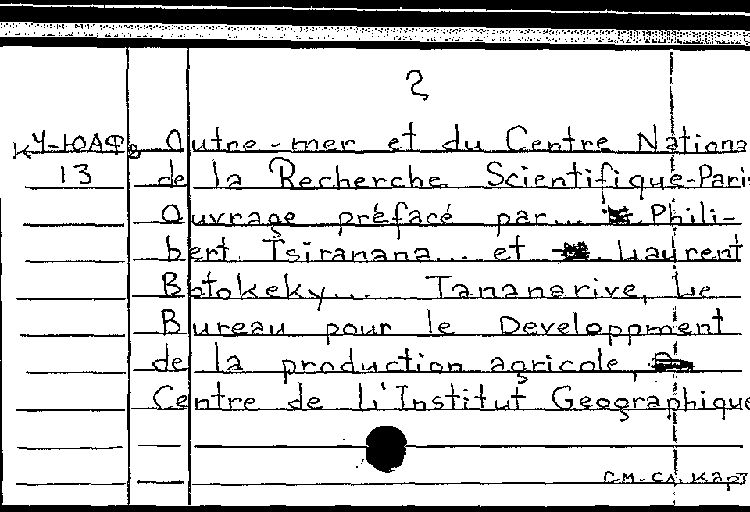 2
КУ-ЮАФ2 Outre-mer et du Centre Nationa
13 de la Recherche Scientifique-Paris
Ouvrage préfacé par... Phili-
bert Tsiranana... et Laurent
Botokeky... Tananarive, Le
Bureau pour le Developpment
de la production agricole,
Centre de L'Institut Geographique
См. сл. карт